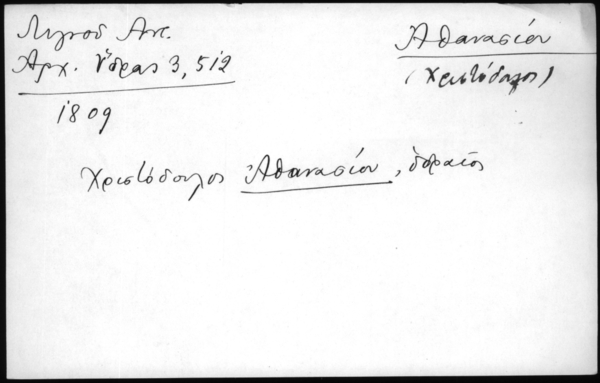 Λιγνοῦ Αντ.
Αρχ. Ὕδρας 3, 512
1809
Ἀθανασίου
(Χριστόδουλος)
Χριστόδουλος Ἀθανασίου, ὑδραῖος